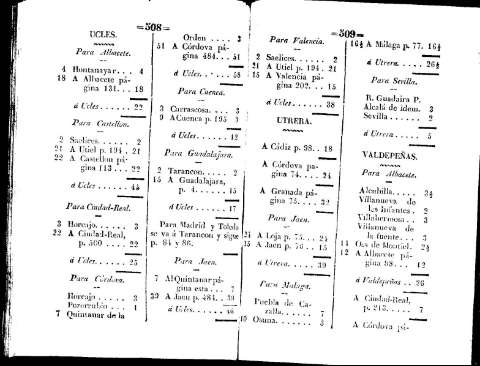 =508=
UCLES.
Para Albacete.
4 Montanayar... 4
18 A Albacete pá-
gina 131... 18
á Ucles... 22
Para Castellon.
2 Saelices.... 2
21 A Utiel p. 194. 21
22 A Castellon pá-
gina 113... 22
á Ucles.... 45
Para Ciudad-Real.
3 Horcajo.... 3
22 A Ciudad-Real,
p. 500.... 22
á Ucles.... 25
Para Córdova.
Horcajo.... 3
Pozorrubio... 1
7 Quintanar de la
Orden... 3
51 A Córdova pá-
gina 484... 51
á Ucles... 58
Para Cuenca.
3 Carrascosa... 3
9 A Cuenca p. 195 9
á Ucles... 12
Para Guadalajara.
2 Tarancon... 2
15 A Guadalajara,
p. 4..... 15
á Ucles.... 17
Para Madrid y Toledo
se va á Tarancon y sigue
p. 84 y 86.
Para Jaen.
7 Al Quintanar pá-
gina esta... 7
39 A Jaen p. 484. 39
á Ucles... 46
=509=
Para Valencia.
2 Saelices.... 2
21 A Utiel p. 194. 21
15 A Valencia pá-
gina 202... 15
á Ucles... 38
UTRERA.
A Cádiz p. 98.. 18
A Córdova pá-
gina 74... 24
A Granada pá-
gina 75... 32
Para Jaen.
24 A Loja p. 75.. 24
15 A Jaen p. 76.. 15
á Utrera... 39
Para Malaga.
Puebla de Ca-
zalla.... 7
15 Osuna..... 3
16½ A Málaga p. 77. 16½
á Utrera.. 26½
Para Sevilla.
R. Guadaira P.
Alcalá de idem. 3
Sevilla..... 2
á Utrera.... 5
VALDEPEÑAS.
Para Albacete.
Alcubilla.... 3½
Villanueva de
los infantes. 2
Villahermosa.. 3
Villanueva de
la fuente... 3
14 Osa de Montiel. 2½
12 A Albacete pá-
gina 98... 12
á Valdepeñas.. 26
A Ciudad-Real,
p. 213.... 7
A Córdova pá-